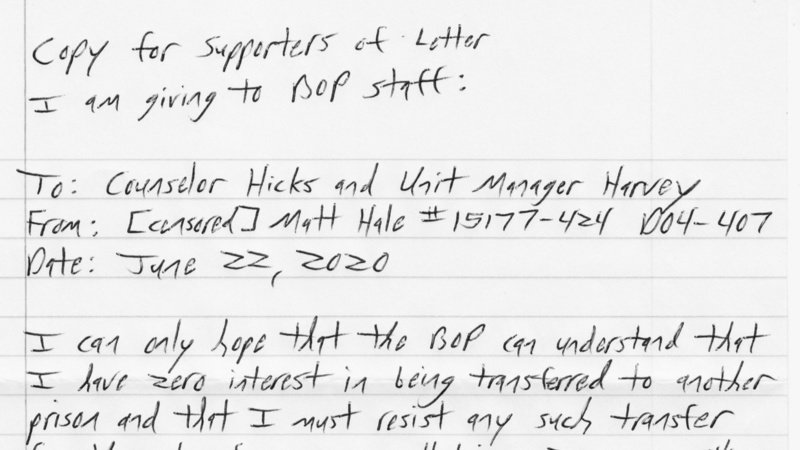 Copy for supporters of Letter
I am giving to BOP staff:
To: Counselor Hicks and Unit Manager Harvey
From: [censored] Matt Hale #15177-424 D04-407
Date: June 22, 2020
I can only hope that the BOP can understand that
I have zero interest in being transferred to another
prison and that I must resist any such transfer